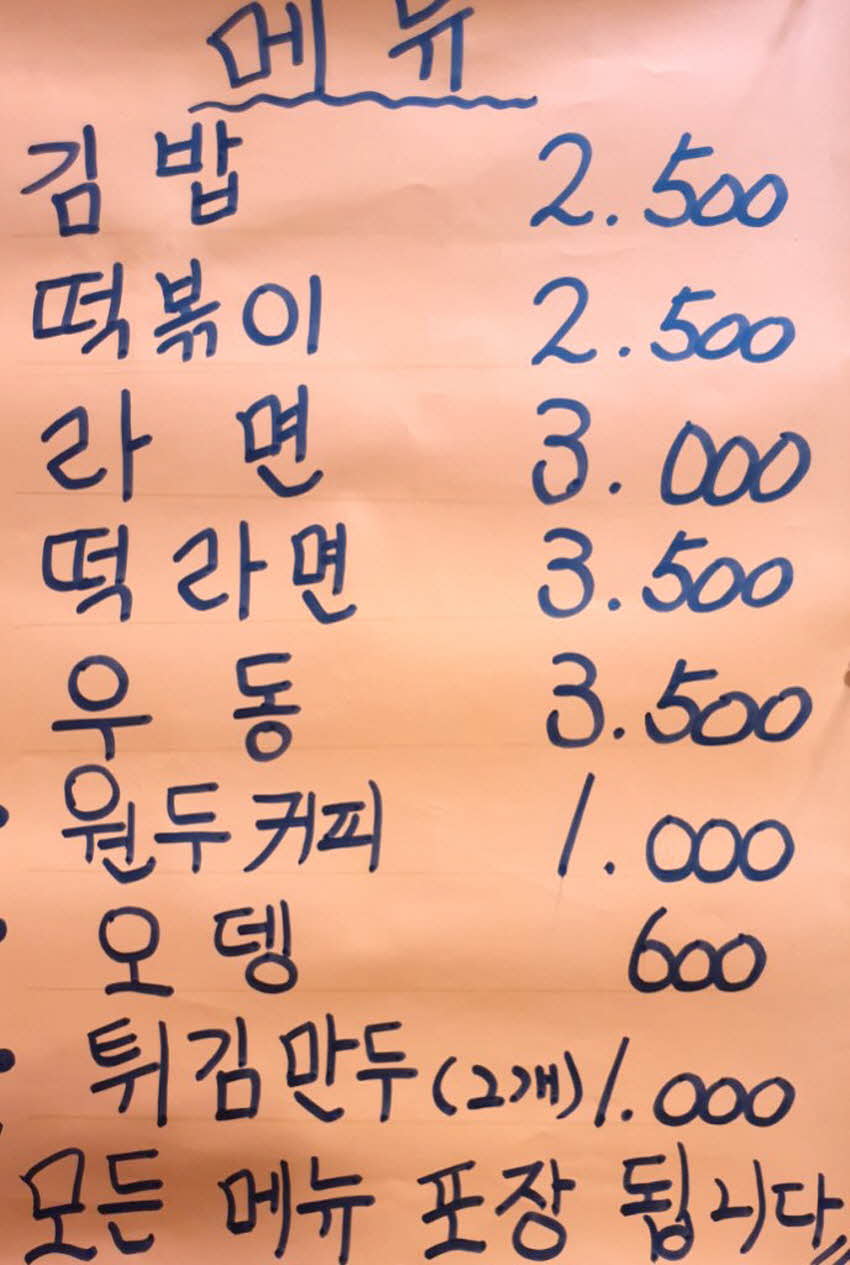 메뉴
김밥 2.500
떡볶이 2.500
라면 3.000
떡라면 3.500
우동 3.500
원두커피 1.000
오뎅 600
튀김만두(2개) 1.000
모든 메뉴 포장 됩니다